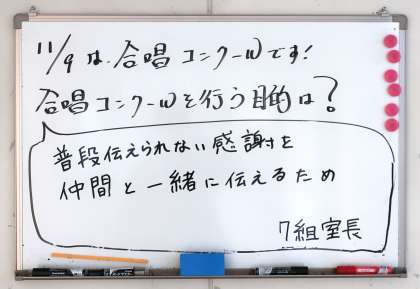 11/9は、合唱コンクールです!
合唱コンクールを行う目的は?
普段伝えられない感謝を
仲間と一緒に伝えるため
7組室長